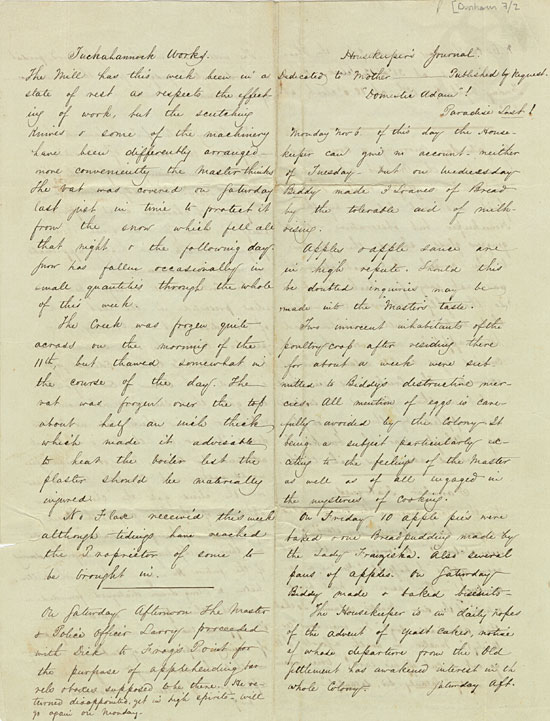 [Dunham 7/2
Tuckahannock Works.
The Mill has this week been in a
state of rest as respects the effect-
ing of work, but the scutching
knives & some of the machinery
have been differently arranged
more conveniently the Master thinks
The vat was covered on Saturday
last just in time to protect it
from the snow which fell all
that night & the following day.
Snow has fallen occasionally in
small quantities through the whole
of this week.
The Creek was frozen quite
across on the morning of the
11th but thawed somewhat in
the course of the day. The
vat was frozen over the top
about half an inch thick
which made it advisable
to heat the boiler lest the
plaster should be materially
injured.
No Flax received this week
although tidings have reached
the Proprietor of some to
be brought in.
On Saturday Afternoon The Master
& Police Officer Larry proceeded
with Dick to Frogs Point for
the purpose of apprehending bar-
rels &c supposed to be there. Re-
turned disappointed, yet in high spirits - will
go again on Monday.
Housekeeper's Journal.
Dedicated to Mother Published by Request.
Domestic Adam!
Paradise Lost!
Monday Nov 6 of this day the House-
keeper can give no account - neither
of Tuesday but on Wednesday
Biddy made 7 Loaves of Bread
by the tolerable aid of milk-
rising.
Apples & apple sauce are
in high repute. Should this
be doubted inquiries may be
made into the Master's taste.
Two innocent inhabitants of the
poultry coop after residing there
for about a week were sub-
mitted to Biddy's destructive mer-
cies. All mention of eggs is care-
fully avoided by the Colony - It
being a subject particularly ex-
citing to the feelings of the Master
as well as of all engaged in
the mysteries of cooking.
On Friday 10 apple pies were
baked & one Bread pudding made by
the Lady Franziska. Also several
pans of apples. On Saturday
Biddy made & baked biscuits -
The Housekeeper is in daily hopes
of the advent of yeast cakes, notice
of whose departure from the Old
settlement has awakened interest in the
whole Colony. Saturday Aft.